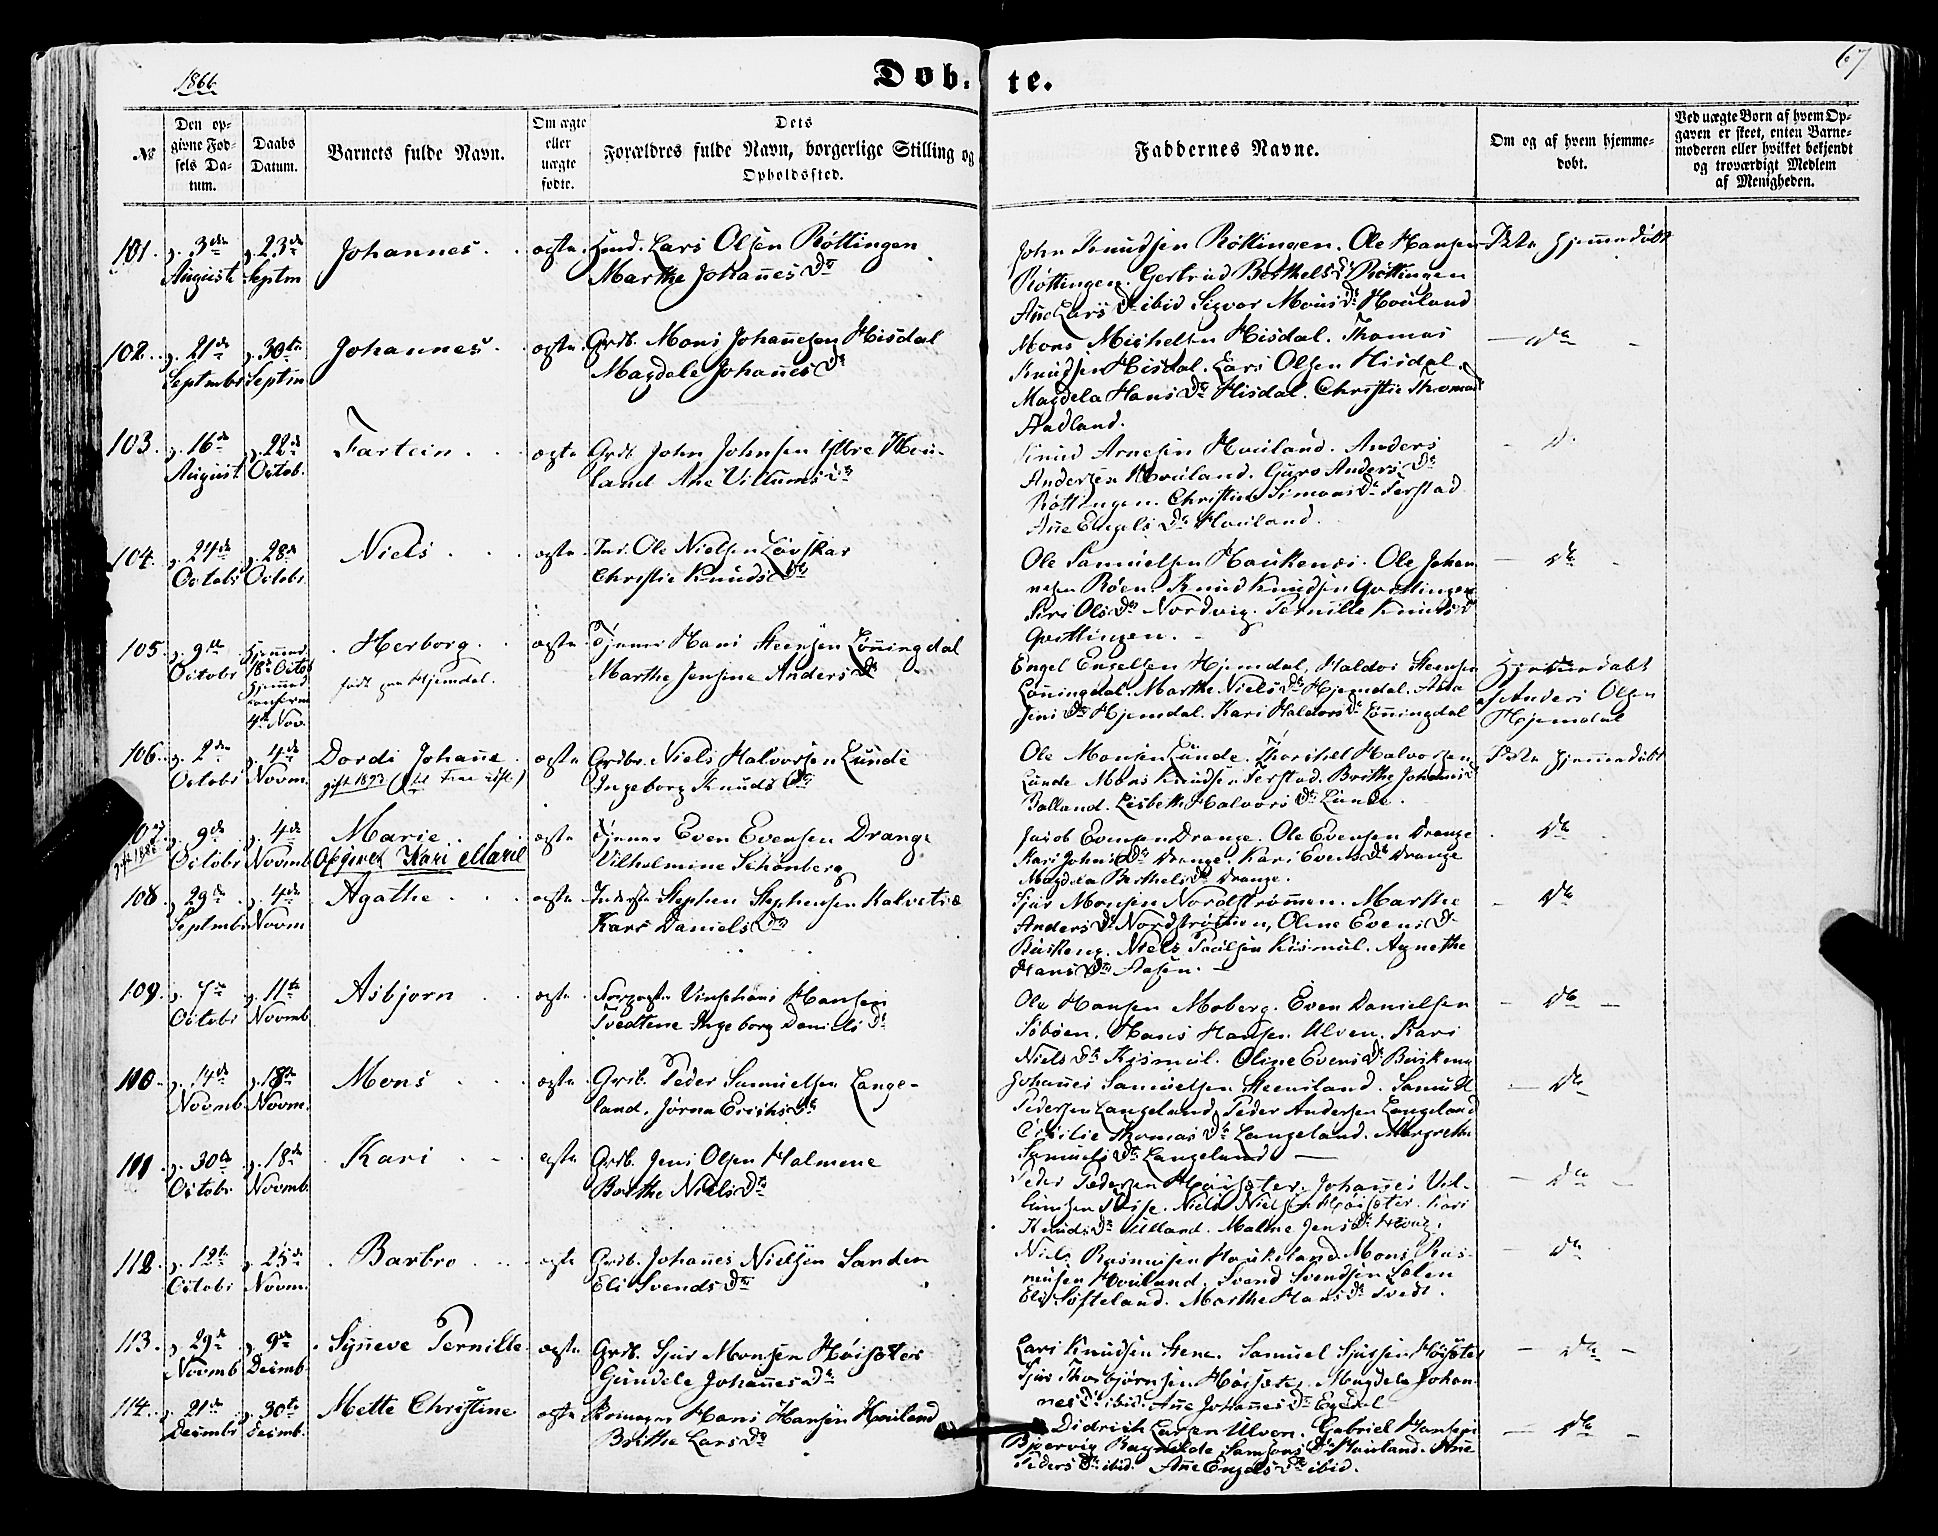 1866
Døb-te.
67
No
Den op-
givne Fød-
sels Da-
tum.
Daabs
Datum.
Barnets fulde Navn.
Om ægte
eller
uægte
fødte.
Dets
Forældres fulde Navn, borgerlige Stilling og
Opholdssted.
Faddernes Navne.
Om og af hvem hjemme-
døbt.
Ved uægte Børn af hvem Op-
gaven er skeet, enten Barne-
moderen eller hvilket bekjendt
og troværdigt Medlem
af Menigheden.
101. d. 3de August d. 23de Septm Johannes. ægte. Lars Olsen Røttingen
Marthe Johannes Dr
John Knudsen Røttingen. Ole Hansen
Røttingen. Gertrud Berthels Dr Røttingen
Ane Lars Dr ibid Sigvor Mons Dr Houland
Ikke hjemmedøbt
102. d. 21de Septmbr d. 30te Septm Johannes. ægte. Grdb. Mons Johannesen Hisdal
Magdele Johannes Dr
Mons Michelsen Hisdal. Thomas
Knudsen Hisdal. Lars Olsen Hisdal.
Magdela Hans Dr Hisdal. Christie Thomas Dr
Aadland.
— Do —
103. d. 16de August d. 22de Octob. Fartein. ægte Grdb. John Johnsen Ystre Hou-
land Ane Villums Dr
Knud Arnesen Houland. Anders
Andersen Houland. Guro Anders Dr
Røttingen. Christine Simons Dr Ferstad
Ane Engels Dr Houland.
— Do
104. d. 24de Octobr d. 28de Octobr. Niels. ægte. Ole Nielsen Løvskar
Christie Knuds Dr
Ole Samuelsen Haukenæs. Ole Johan-
nesen Røen. Knud Knudsen Gvottingen
Siri Ols Dr Nordvig. Pernille Knuds Dr
Gvottingen.
— Do
105. d. 9de Octobr Hjemmed. 18de Octob Hjemmed. confirm. 4de Nov. Herborg.
født paa Hjemdal.
ægte. Tjener Hans Steensen Lønningdal
Marthe Jensine Anders Dr
Engel Engelsen Hjemdal, Haldor Steensen
Lønningdal. Marthe Niels Dr Hjemdal. Anna
Jens Dr Hjemdal. Kari Haldors Dr Lønningdal
Hjemmedøbt
af Anders Olsen
Hjemdal
106. d. 2den Octobr d. 4de Novm. Dordi Johanne.
gift 1893
ægte. Grdbr. Niels Halvorsen Lunde
Ingeborg Knuds Dr
Ole Monsen Lunde. Thorkild Halvorsen
Lunde Mons Knudsen Ferstad. Brithe Johannes Dr
Lisbeth Halvors Dr Lunde.
Ikke hjemmedøbt
107 d. 9de Octobr d. 4de Novmb Marie
Opgivet Kari Marie
ægte Tjener Even Evensen Drange
Vilhelmine Schønberg
Jacob Evensen Drange. Ole Evensen Drange
Kari Johns Dr Drange. Kari Evens Dr Drange
Magdela Berthels Dr Drange.
Do
108 d. 29de Septmbr d. 4de Novm Agathe. ægte. Inderst Stephen Stephensen Kalvetræ
Kari Daniels Dr
Sjur Monsen Nordstrømmen. Marthe
Anders Dr Nordstrømmen, Oline Evens Dr
Buskeng. Niels Paulsen Kismul. Agnethe
Hans Dr Aasen.
— Do
109. d. 7de Octobr d. 11te Novmb Asbjørn ægte. Hansen
Tvedtene Ingeborg Daniels Dr
Ole Hansen Moberg. Even Danielsen
Søbøen. Hans Hansen Ulven. Kari
Niels Dr Kismul. Oline Evens Dr Buskeng
— Do —
110. d. 14de Novmb d. 18de Novm. Mons ægte. Grdb. Peder Samuelsen Lange-
land. Jørna Erichs Dr
Johannes Samuelsen Steensland. Samuel
Pedersen Langeland, Peder Andersen Langeland
Cicilie Thomas Dr Langeland. Margrethe
Samuels Dr Langeland —
— Do
111 d. 30te Octobr d. 18de Novmb. Kari ægte Grdb. Jens Olsen Halmene
Brithe Niels Dr
Peder Pedersen Høisæter. Johannes
Niels Nielsen Høisæter. Kari
Knuds Dr Malene Jens Dr
— Do —
112. d. 12te Octobr d. 25de Novm. Barbro ægte Grdb. Johannes Nielsen Sanden
Eli Svends Dr
Niels Rasmusen Haukeland. Mons Ras-
musen Houland. Svend Svendsen
Eli Søfteland. Marthe Hans Dr Tvedt.
— Do
113. d. 29de Novmb d. 9de Decmb. Synneve Pernille. ægte Grdb. Sjur Monsen Høisæter
Gundele Johannes Dr
Lars Knudsen Steene. Samuel Sjursen Høisæter
Sjur Thorbjørnsen Høisæter. Magdela Johan-
nes Dr ibid. Ane Johannes Dr Enedal
— Do —
114. d. 21de Decmbr d. 30te Decmb. Mette Christine ægte Hans Hansen Houland
Brithe Lars Dr
Didrich Larsen Ulven. Gabriel Hansen
Bjørvig Ragnilde Samsons Dr Houland. Ane
Peders Dr ibid. Ane Engels Dr ibid.
— Do —